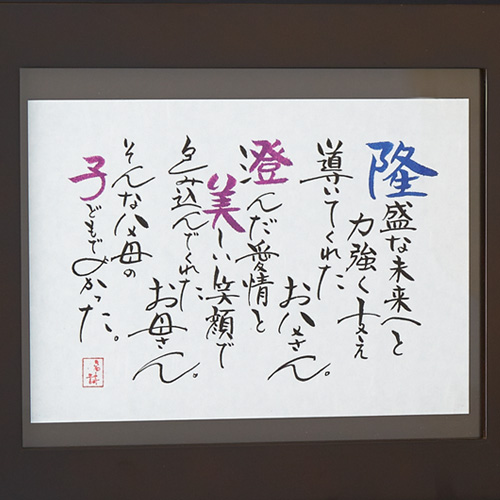 隆盛な未来へと
力強く支え
導いてくれた
お父さん。
澄んだ愛情と
美しい笑顔で
包み込んでくれた
お母さん。
そんな父母の
子どもでよかった。